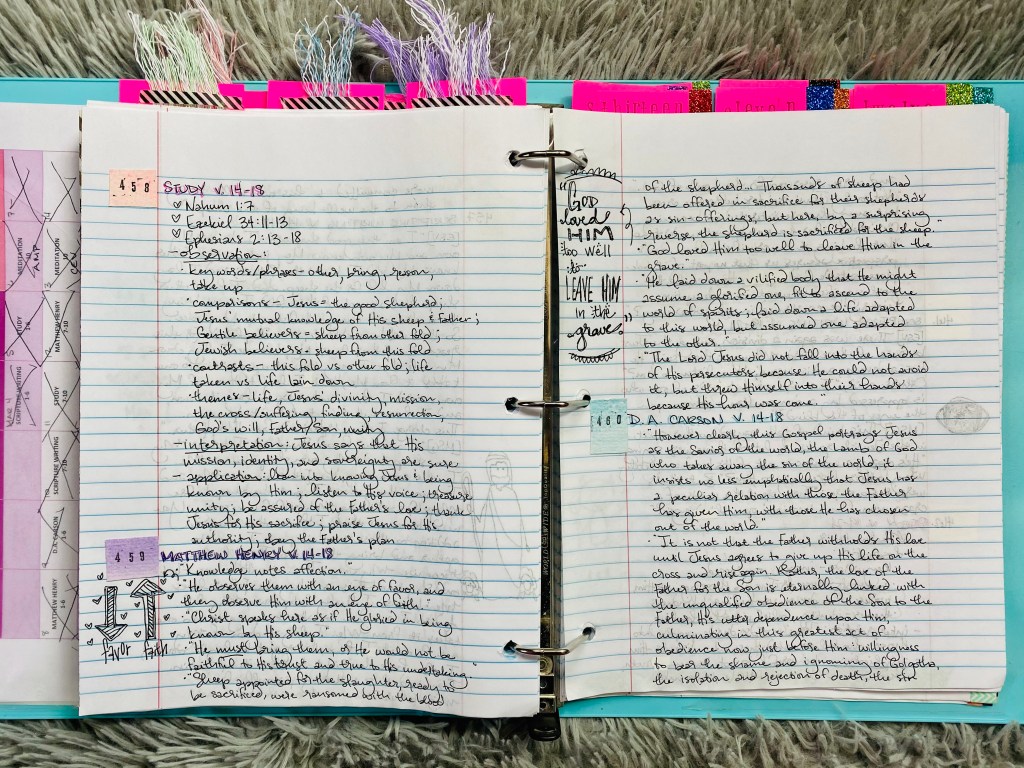 458
STUDY V. 14-18
Nahum 1:7
Ezekiel 34:11-13
Ephesians 2:13-18
-observation:
·key words/phrases-other, bring, reason,
take up
·comparisons- Jesus=the good shepherd;
Jesus' mutual knowledge of His sheep & Father;
Gentile believers=sheep from other fold;
Jewish believers=sheep from this fold
·contrasts- this fold vs other fold; life
taken vs life lain down
·themes-life, Jesus' divinity, mission,
the cross/suffering, finding, resurrection,
God's will, Father/Son, unity
-interpretation: Jesus says that His
mission, identity, and sovereignty are sure
-application: lean into knowing Jesus & being
known by Him; listen to His voice; treasure
unity; be assured of the Father's love; thank
Jesus for His sacrifice; praise Jesus for His
authority; obey the Father's plan
459
MATTHEW HENRY V. 14-18
"Knowledge notes affection."
·"He observes them with an eye of favor, and
they observe Him with an eye of faith."
·"Christ speaks here as if He gloried in being
known by His sheep."
·"He must bring them, or He would not be
faithful to His trust and true to His undertaking."
·"Sheep appointed for the slaughter, ready to
be sacrificed, were ransomed with the blood
favor faith
"GOD
loved
HIM
too well
to
LEAVE HIM
in the
grave."
of the shepherd... Thousands of sheep had
been offered in sacrifice for their shepherds
as sin-offerings, but here, by a surprising
reverse, the shepherd is sacrificed for the sheep."
·"God loved Him too well to leave Him in the
grave."
·"He laid down a vilified body that He might
assume a glorified one, fit to ascend to the
world of spirits; laid down a life adapted
to this world, but assumed one adapted
to the other."
·"The Lord Jesus did not fall into the hands
of His persecutors because He could not avoid
it, but threw Himself into their hands
because His hour was come."
460
D.A. CARSON V. 14-18
·"However clearly this Gospel portrays Jesus
as the Savior of the world, the Lamb of God
who takes away the sin of the world, it
insists no less emphatically that Jesus has
a peculiar relation with those the Father
has given Him, with those He has chosen
out of the world."
·"It is not that the Father withholds His love
until Jesus agrees to give up His life on the
cross and rise again. Rather, the love of the
Father for the Son is eternally linked with
the unqualified obedience of the Son to the
Father, His utter dependence upon Him,
culminating in this greatest act of
obedience now just before Him: willingness
to bear the shame and ignominy of Golgotha,
the isolation and rejection of death, the sin
MEDITATION
AMP
MEDITATION
CEV
STUDY
MATTHEW HENRY
7-10
SCRIPTURE WRITING
1-6
STUDY
7-10
SCRIPTURE WRITING
D.A. CARSON
MATTHEW HENRY
1-6